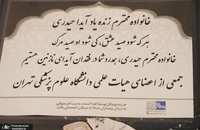 خانواده محترم زنده یاد آیدا حیدری
هر که شود صید عشق، کی شود او صید مرگ
خانواده محترم حیدری، همدرد شما در فقدان آیدای نازنین هستیم
جمعی از اعضای هیات علمی دانشگاه علوم پزشکی تهران